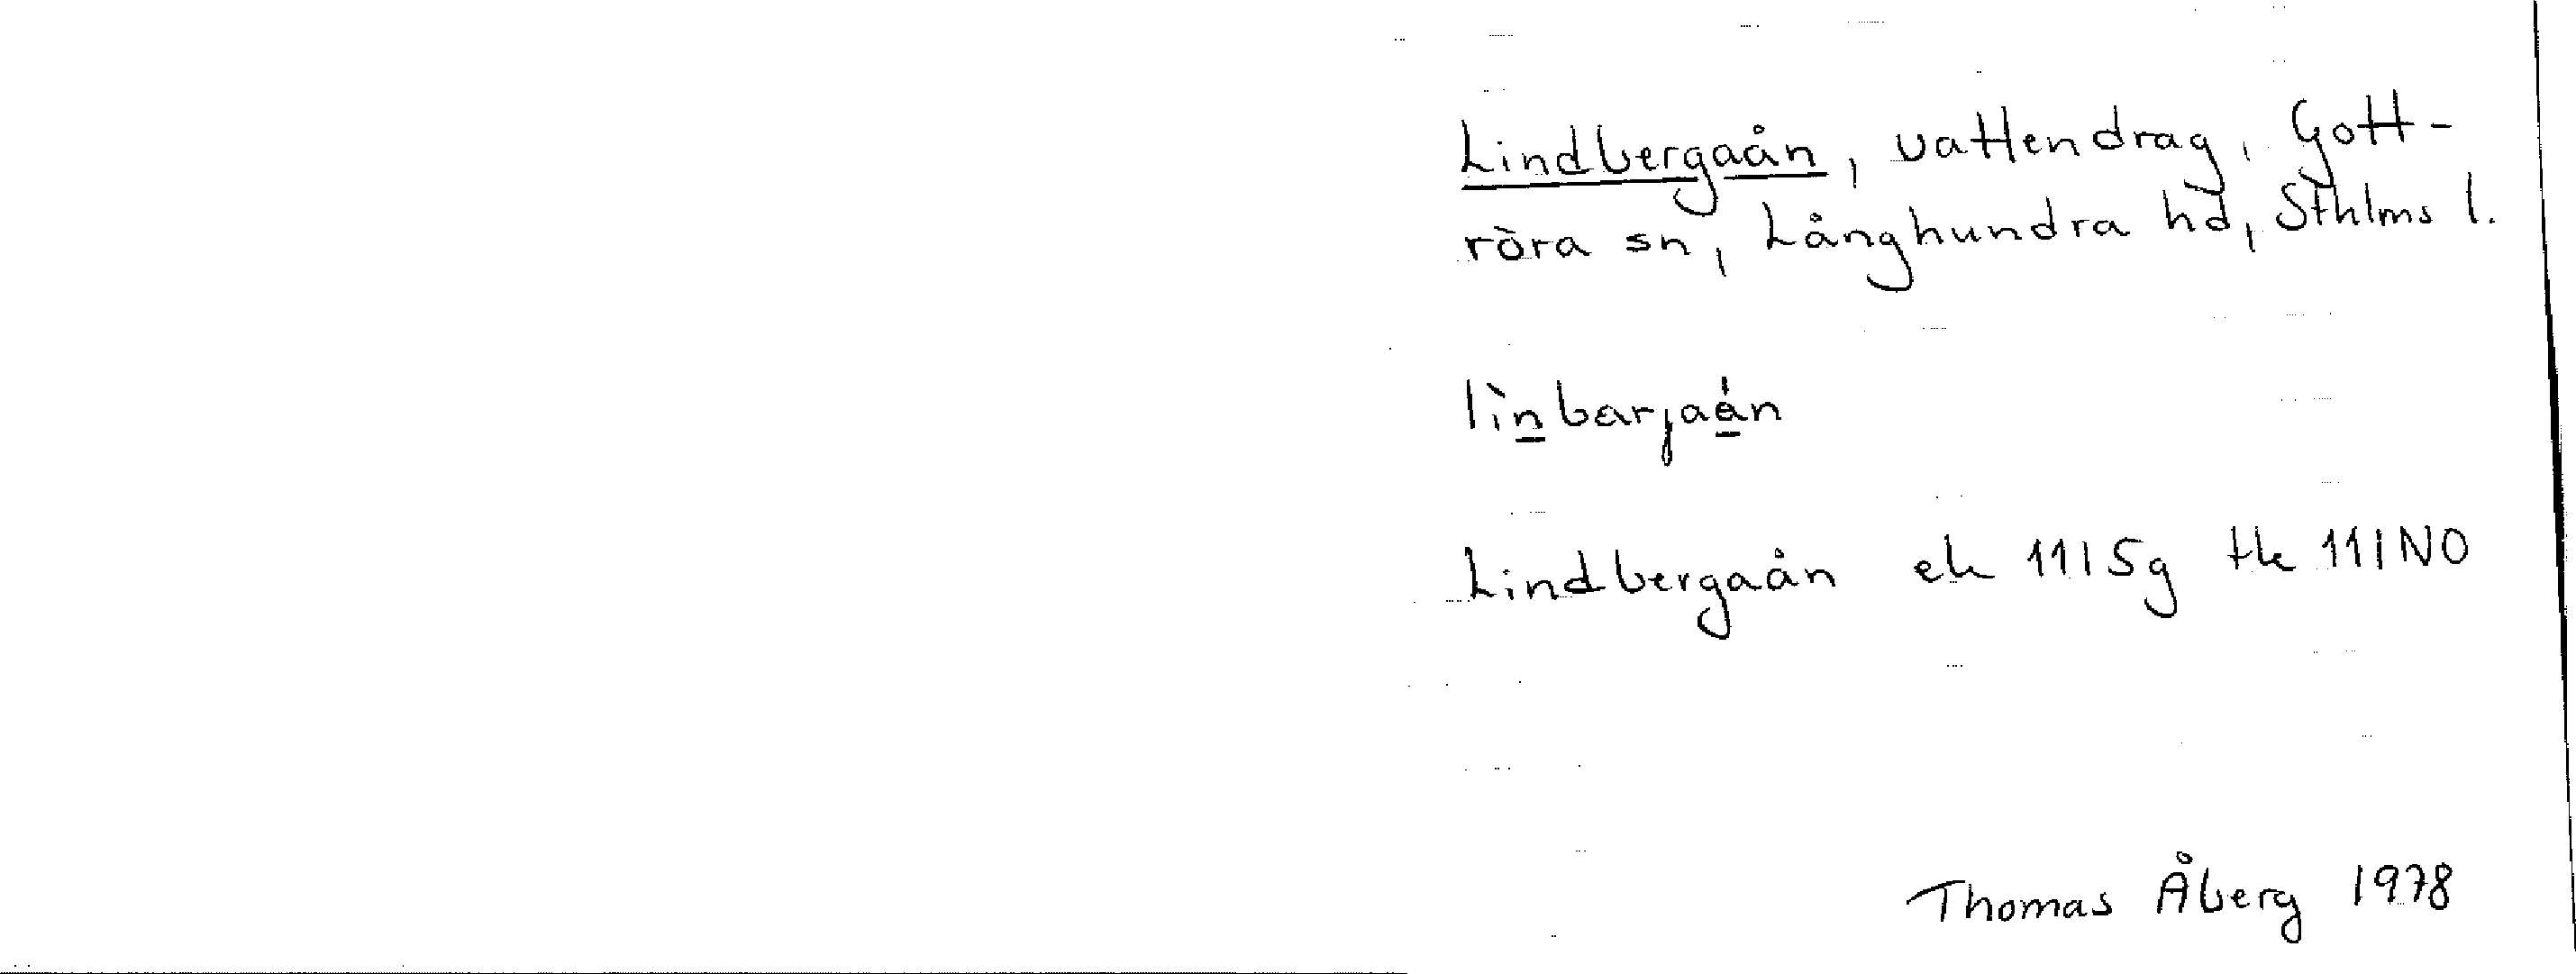 Lindbergaån, vattendrag, Gott-
röra sn, Långhundra hd, Sthlms l.
lìnbarjaån
Lindbergaån ek 11I5g tk 11INO
Thomas Åberg 1978